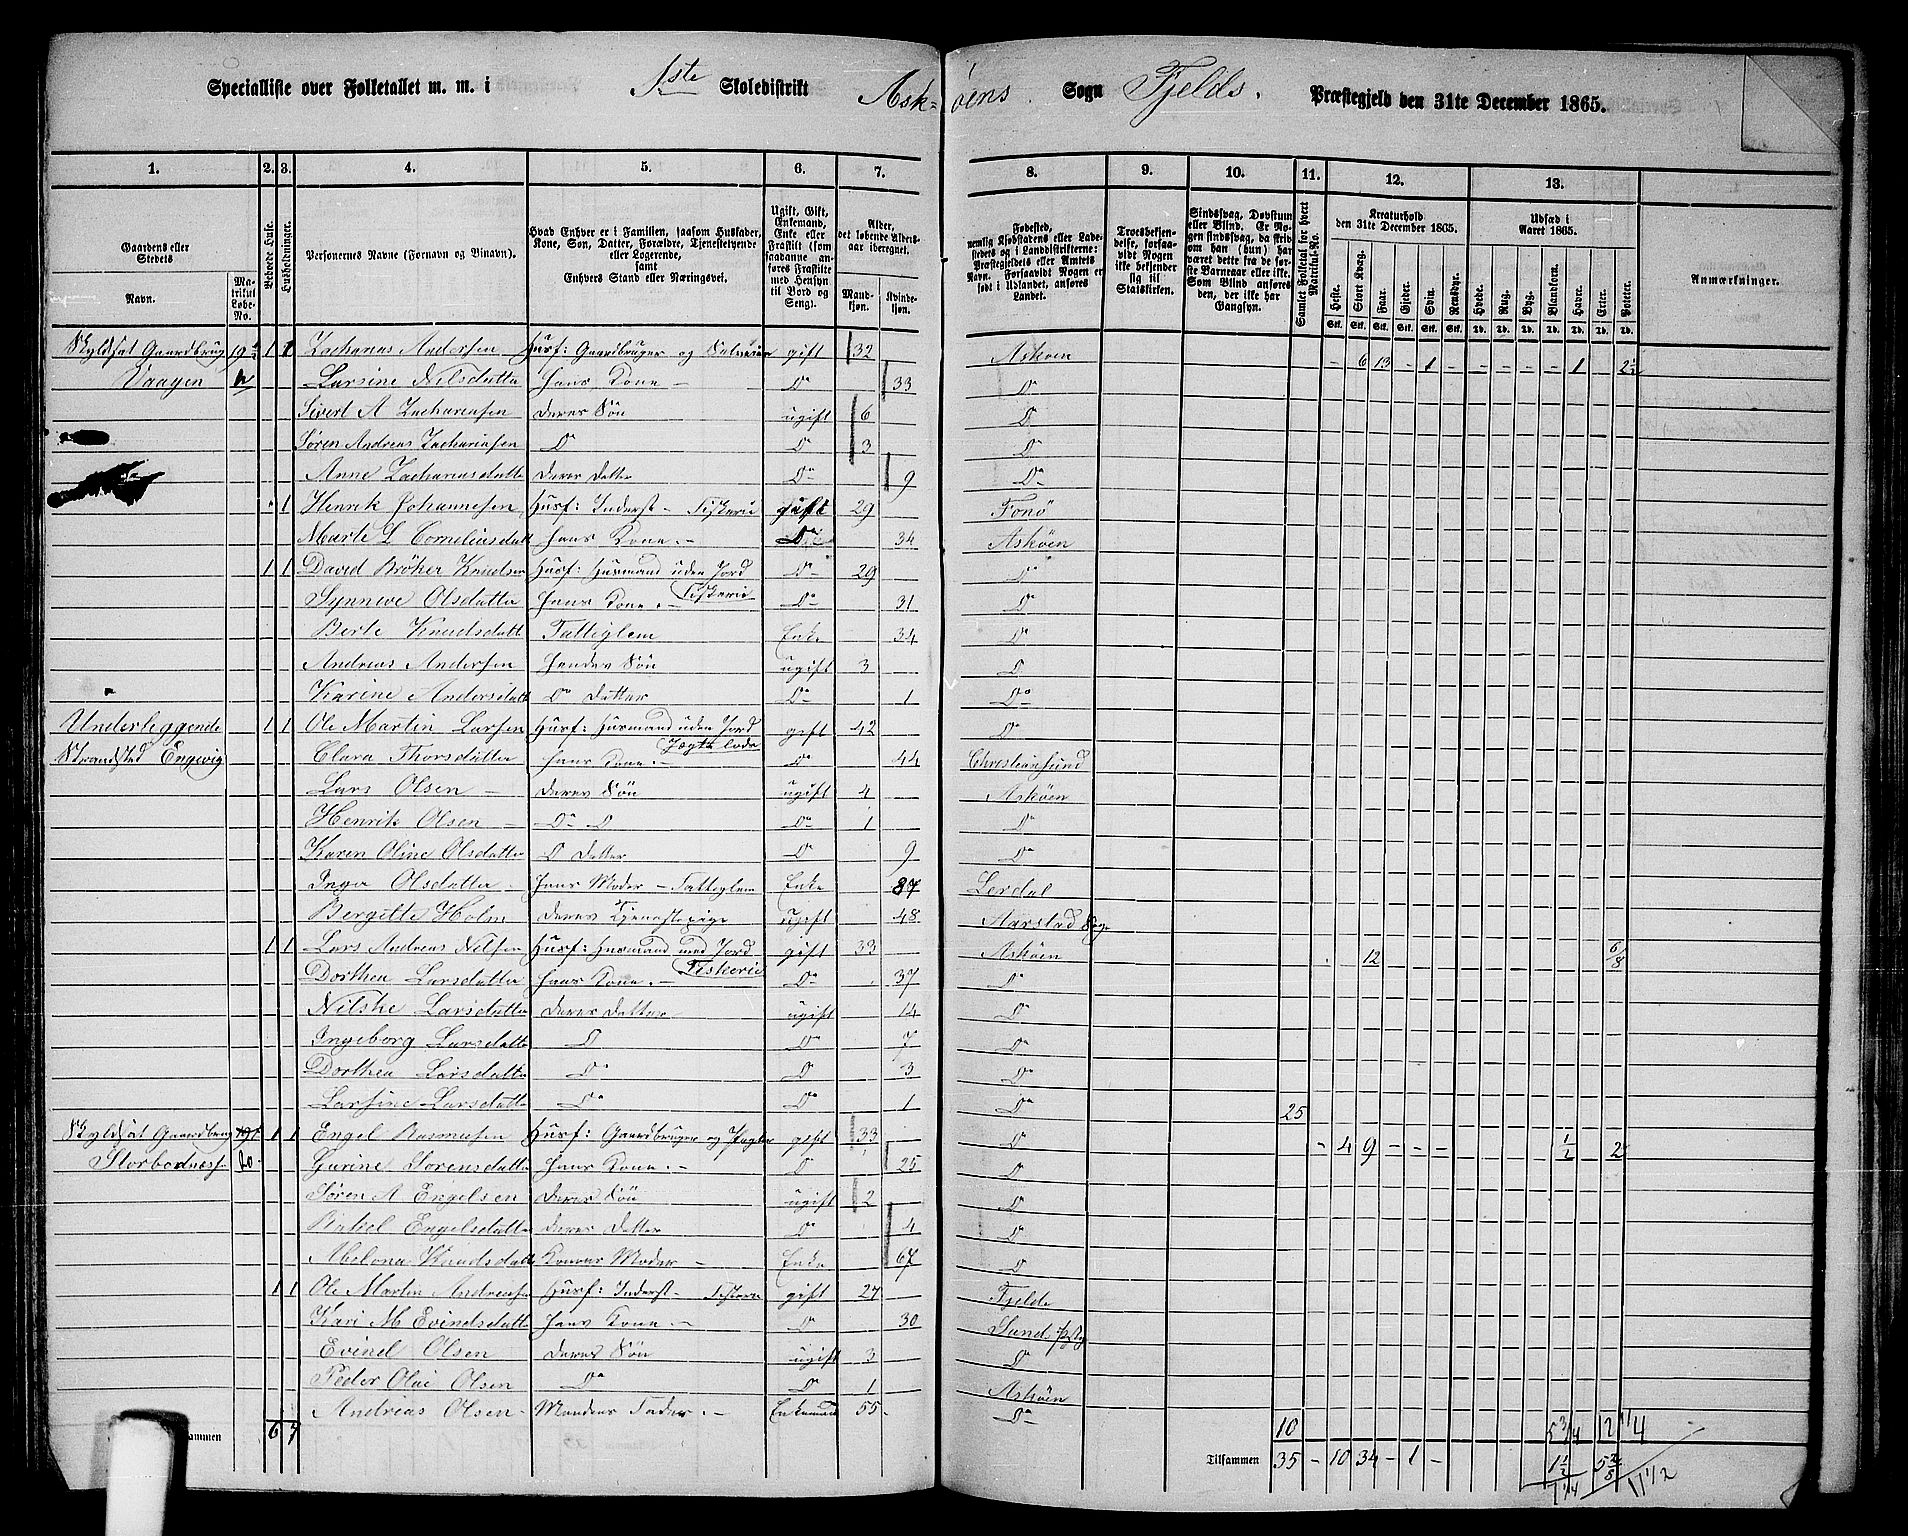 Specialliste over Folketallet m. m. i 1ste Skoledistrikt Askøens Sogn Fjelds. Præstegjeld den 31te December 1865.
1. 2. 3. 4. 5. 6. 7. 8. 9. 10. 11. 12. 13.
Gaardens eller Stedets
Navn.
Matrikul Løbe-No.
Beboede Huse.
Husholdninger.
Personernes Navne (Fornavn og Binavn).
Hvad Enhver er i Familien, saasom Husfader, Kone, Søn, Datter, Forældre, Tjenestetyende eller Logerende, samt Enhvers Stand eller Næringsvei.
Ugift, Gift, Enkemand, Enke eller Fraskilt (som saadanne anføres Fraskilte med Hensyn til Bord og Seng).
Alder, det løbende Alders-aar iberegnet.
Mandkjøn.
Kvindekjøn.
Fødested, nemlig Kjøbstadens eller Ladestedets eller i Landdistrikterne: Præstegjeldets eller Amtets Navn. Forsaavidt Nogen er født i Udlandet, anføres Landet.
Troesbekjendelse, forsaavidt Nogen ikke bekjender sig til Statskirken.
Sindssvag, Døvstum eller Blind. Om Nogen sindssvag, da hvorvidt han (hun) har været dette fra de første Barneaar eller ikke. Som Blind anføres den, der ikke har Gangsyn.
Samlet Folketal for hvert Matrikul-No.
Kreaturhold den 31te December 1865.
Heste. Stort Kvæg. Faar. Gjeder. Svin. Rensdyr.
Udsæd i Aaret 1865.
Hvede. Rug. Byg. Blandkorn. Havre. Erter. Poteter.
Anmærkninger.
Skyldsat Gaardbrug 19 1 1 Zacharias Andersen Husf: Gaardbruger og gift 32 Askøen - 6 13 - 1 - - - - - 1 - 2½
Vaagen Larsine Nilsdatter hans Kone - Do 33 Do
Sivert A Zachariasen deres Søn ugift 6 D
Søren Andreas Zachariasen Do Do 3 D
Anne Zachariasdatter deres Datter Do 9 Do
1 Henrik Johannesen Husf: Inderst - Fiskerie gift 29 Fonø
Marte L Corneliusdatt hans Kone. - Do 34 Askøen
1 1 David Brøker Knudsen Husf: Huusmand uden Jord Do 29 Do
Fiskerie
Synneve Olsdatter hans Kone. - Do 31 Do
Berte Knudsdatt Fattiglem Enke 34 Do
Andreas Andersen hendes Søn ugift 3 D
Karine Andersdatt Do Datter Do 1 Do
Underliggende 1 1 Ole Martin Larsen Husf: Huusmand uden Jord gift 42 Do
Strandsted Engevig Clara Thorsdatter hans Kone. - Do 44 Christiansund
Lars Olsen - deres Søn ugift 4 Askøen
Henrik Olsen - Do D Do 1 Do
Karen Oline Olsdatter D Datter Do 9 Do
Inga Olsdatter hans Moder - Fattiglem Enke 87 Lerdal
Bergitte Holm deres Tjenestepige ugift 48 Aarstad Sogn
1 1 Lars Andreas Nilsen Husf: Huusmand med Jord gift 33 Askøen 12 6/8
Fiskerie
Dorthea Larsdatter hans Kone. - Do 37 Do
Nilske Larsdatter deres Datter ugift 14 D
Ingeborg Larsdatter D Do 7 Do
Dorthea Larsdatter Do D 3 Do
Larsine Larsdatter Do Do 1 Do 25
Skyldsat Gaardbrug 1 1 Engel Rasmusen Husf: Gaardbruger og gift 33 D - 4 9 - - - ½ 2
Storbotnes 20 Gurine Sørensdatter hans Kone. - D 25 D
Søren A Engelsen deres Søn ugift 2 D
Engelsdatter deres Datter D 4 D
Abelona Knudsdatter Konens Moder - Enke 67 D
1 1 Ole Martin Andreasen Husf: Inderst - gift 27 Fjelds
Kari M Evindsdatter hans Kone. - D 30 Sund
Evind Olsen deres Søn ugift 3 D
Peder Olai Olsen Do D 1 Askøen
Andreas Olsen - Mandens Fader. - Enkemand 55 Do 10
5 3/4 12 1/4
6 7 Tilsammen 35 - 10 34 - 1 - 1½ 5
11 1/2